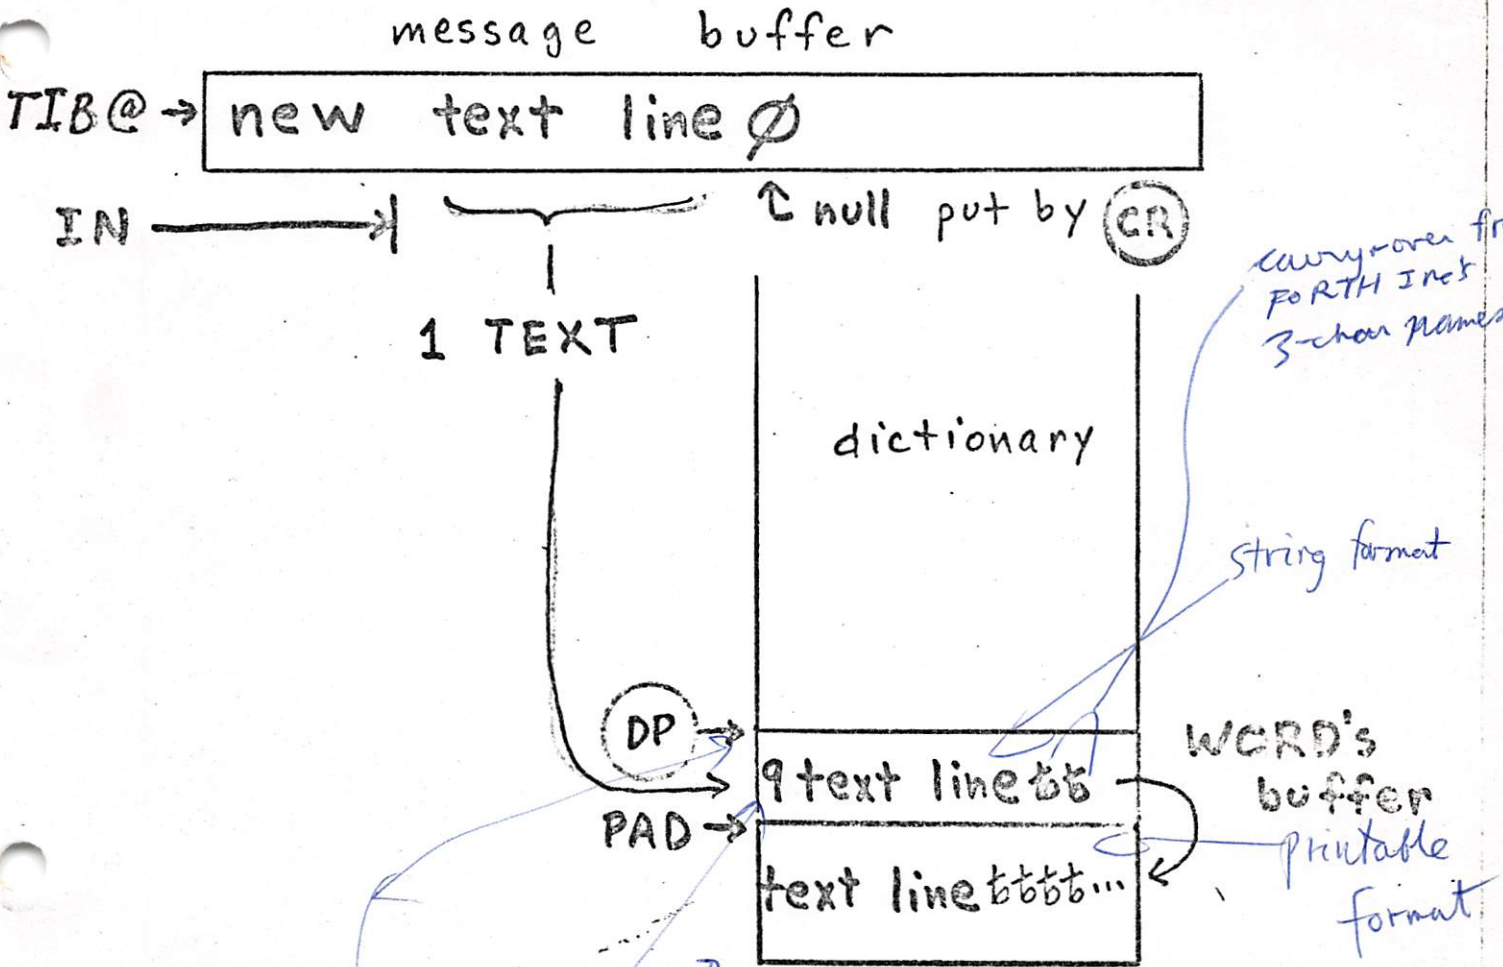 message buffer
TIB@ → new text line Ø
IN
↑ null put by CR
carryover
FORTH Inc's
3-char names
1 TEXT
dictionary
string format
DP →
9text line␢␢
WORD's
buffer
PAD →
printable
format
text line␢␢␢␢...